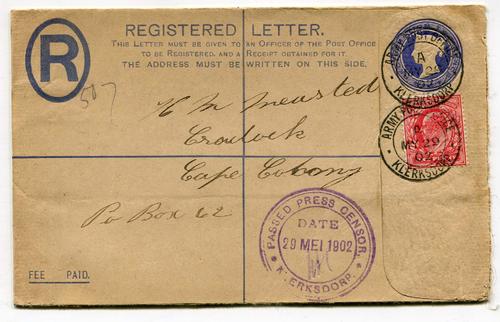 REGISTERED LETTER.
THIS LETTER MUST BE GIVEN TO AN OFFICER OF THE POST OFFICE
TO BE REGISTERED, AND A RECEIPT OBTAINED FOR IT.
THE ADDRESS MUST BE WRITTEN ON THIS SIDE.
R
507
ARMY POST OFFICE
A
MY 29
02
KLERKSDORP
ARMY POST OFFICE
A
MY 29
02
KLERKSDORP
Cradock
Cape Colony
Po Box 62
PASSED PRESS CENSOR.
DATE
29 MEI 1902
KLERKSDORP.
FEE PAID.